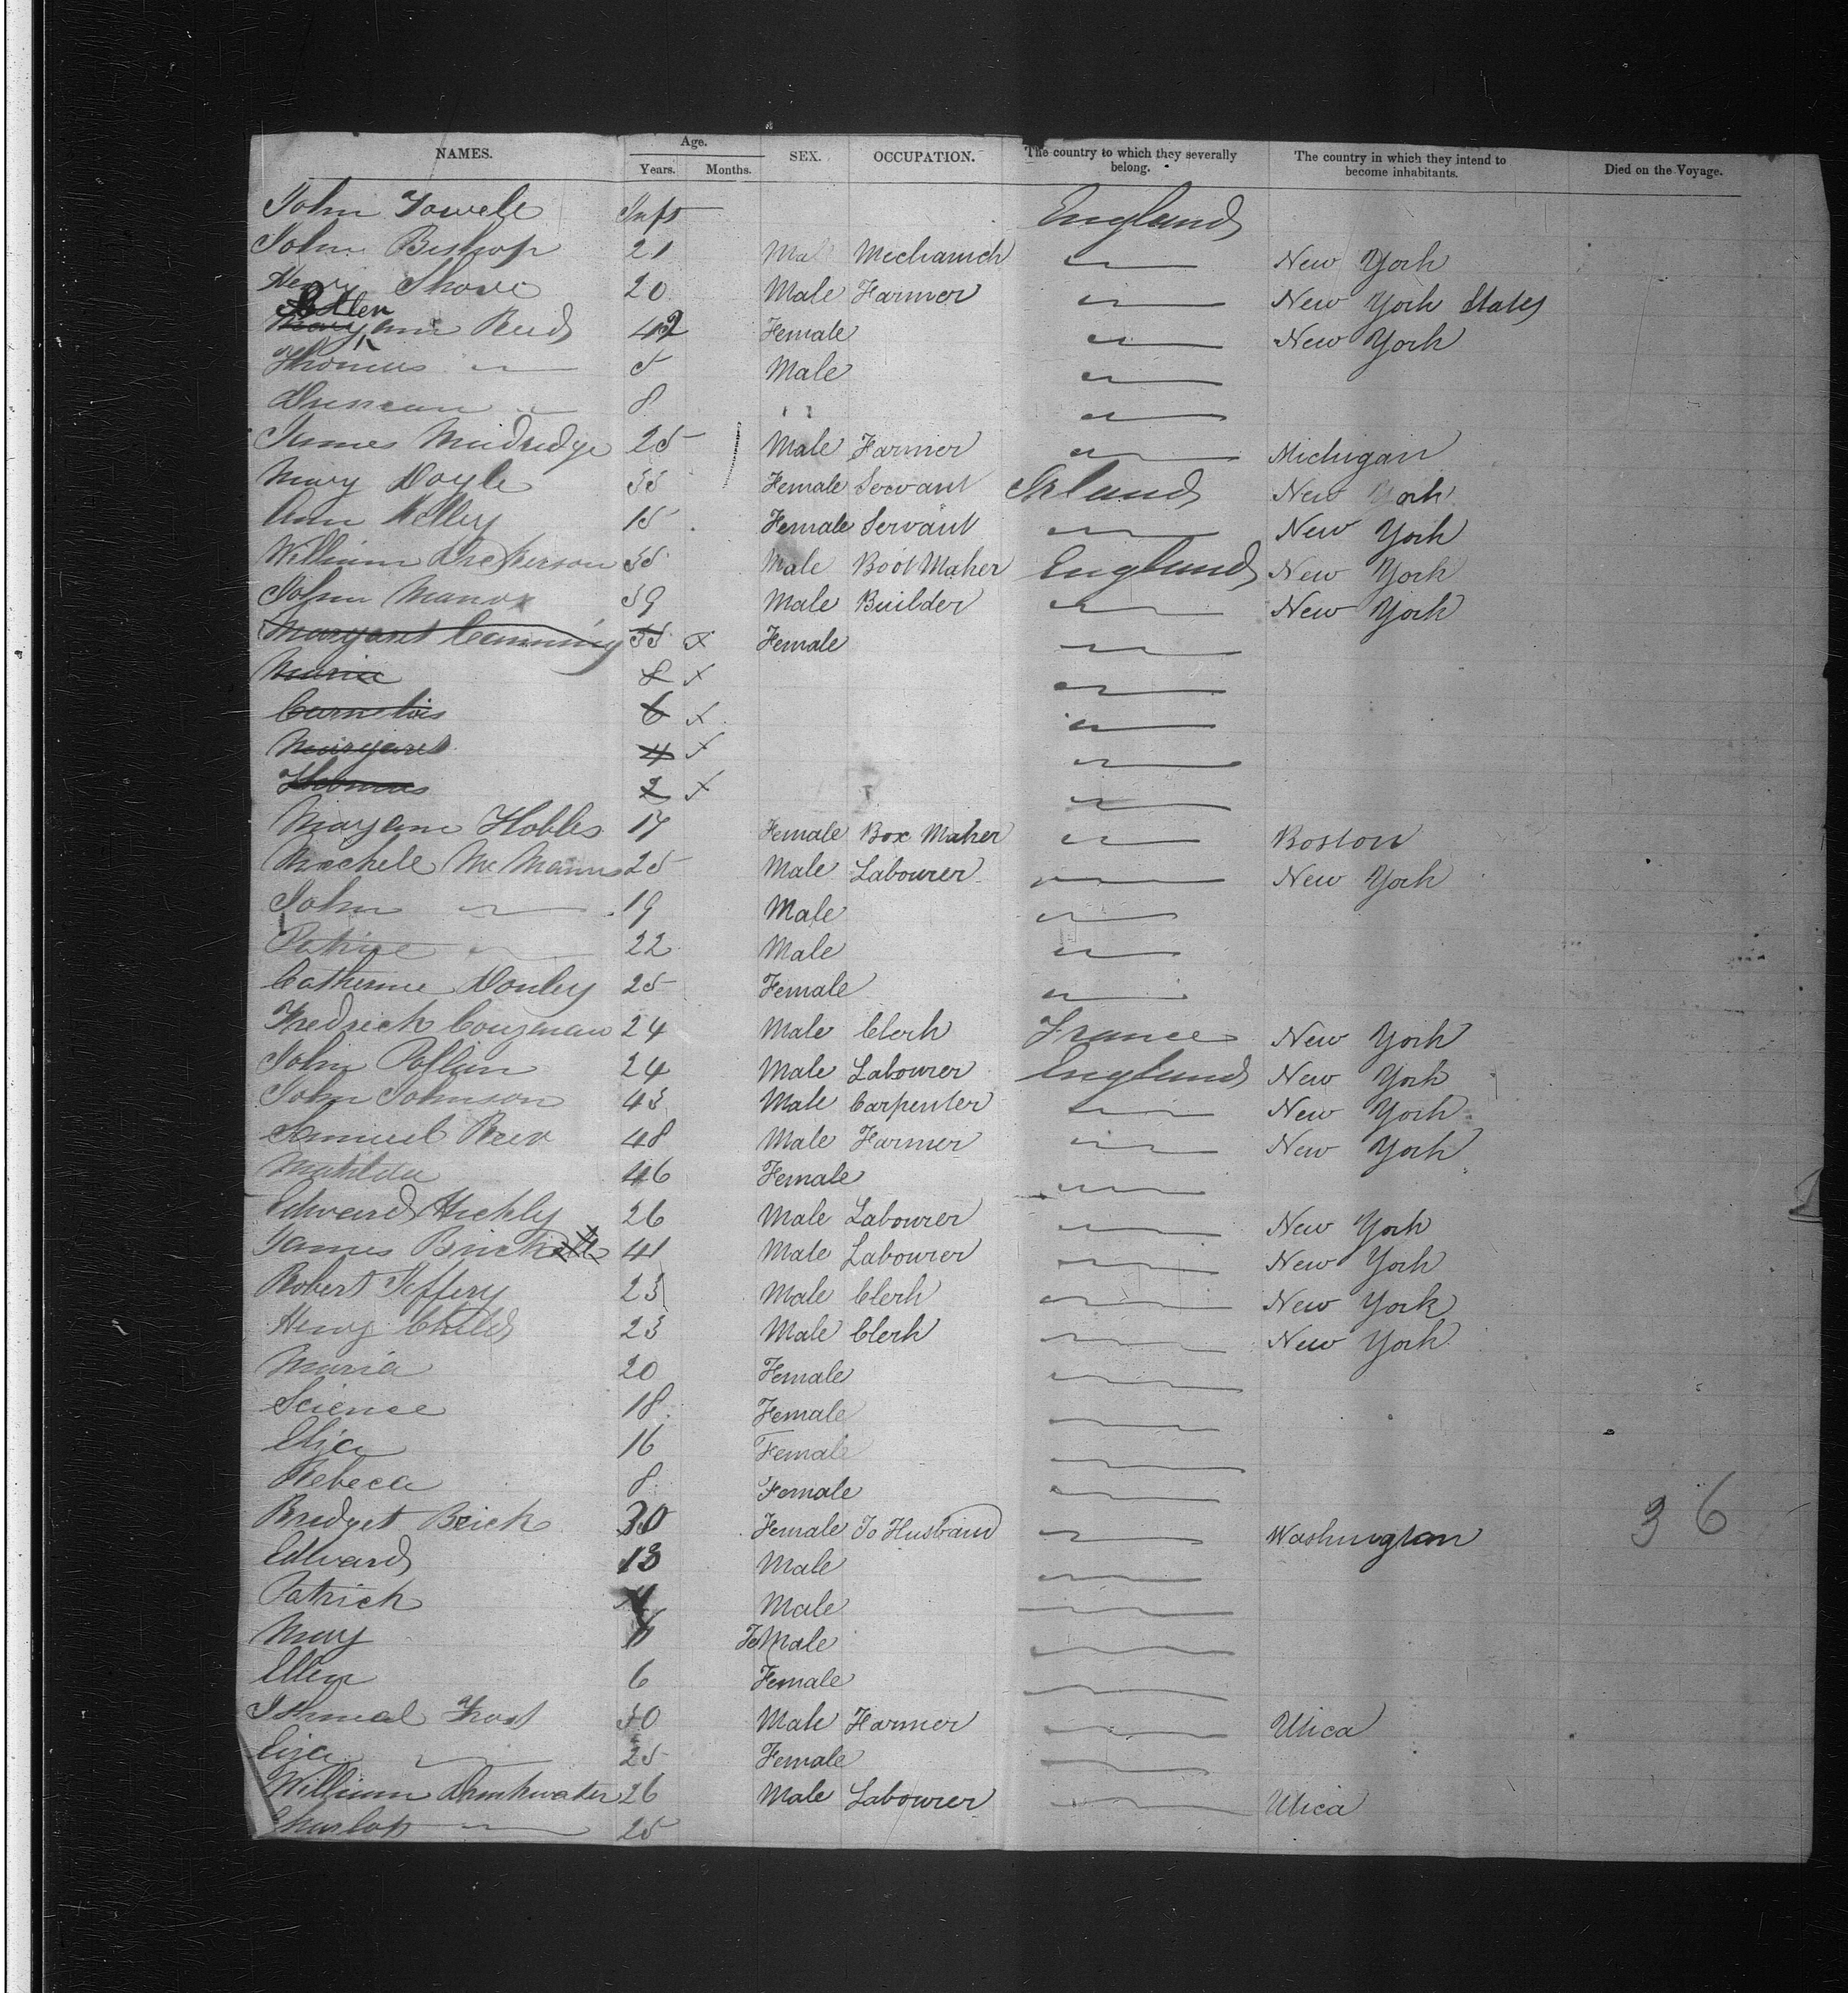 NAMES. Age. Years. Months. SEX. OCCUPATION. The country to which they severally belong. The country in which they intend to become inhabitants. Died on the Voyage.
John Towele Inft England
John Bishop 21 Male Mechanich New York
Henry Shove 20 Male Farmer New York States
Ellen Mary ann Reed 42 Female New York
Thomas 5 Male
Duncan 8 "
James Muidredge 25 Male Farmer Michigan
Mary Doyle 35 Female Servant Irland New York
Ann Kelley 15 Female Servant New York
William Dickerson 35 Male Boot Maker England New York
John Manox 39 Male Builder New York
Margaret Canning 35 x Female
Maria 8 x
Cornelius 6 x
Margaret 4 x
Thomas 2 x
Maryann Hobbs 17 Female Box Maker Boston
Mechele McManus 25 Male Labourer New York
John 19 Male
Patrice 22 Male
Catherine Donley 25 Female
Fredrich Couzman 24 Male Clerk France New York
John Pollan 24 Male Labourer England New York
John Johnson 43 Male Carpenter New York
Samuel Reev 48 Male Farmer New York
Matilda 46 Female
Edward Hickly 26 Male Labourer New York
James Brick 41 Male Labourer New York
Robert Jeffery 23 Male Clerk New York
Henry Child 23 Male Clerk New York
Maria 20 Female
Science 18 Female
Eliza 16 Female
Rebeca 8 Female
Bredget Brick 30 Female To Husband Washington 36
Edward 13 Male
Patrick Male
Mary FeMale
Ellen 6 Female
Ishmal Frost 30 Male Farmer Utica
Liza 25 Female
William Drinkwater 26 Male Labourer Utica
Sharlot 25